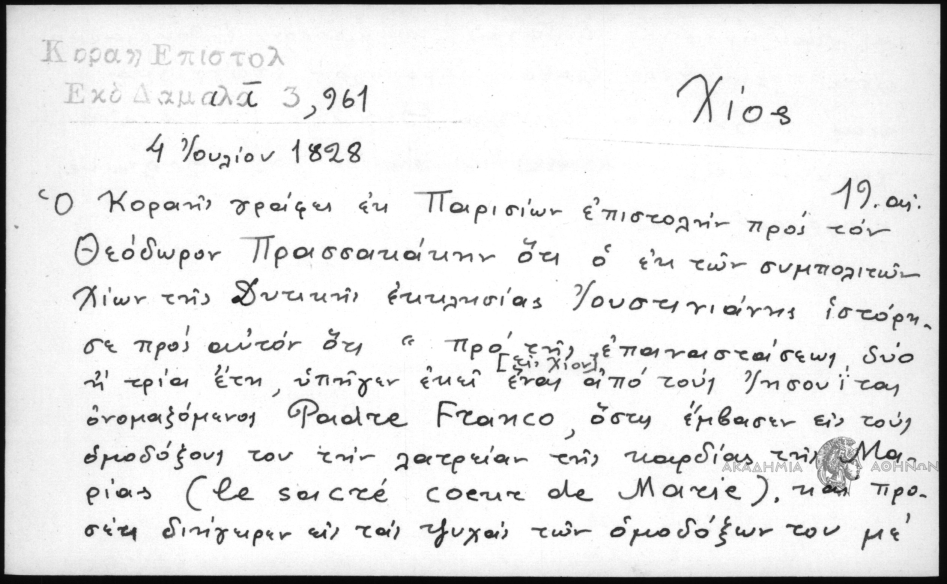 Κοραη Επιστολ
Εκδ Δαμαλᾶ 3,961
Χίος
4 Ἰουλίου 1828
19. αἰ.
Ὁ Κοραῆς γράφει ἐκ Παρισίων ἐπιστολὴν πρὸς τὸν
Θεόδωρον Πρασσακάκην ὅτι ὁ ἐκ τῶν συμπολιτῶν
Χίων τῆς Δυτικῆς ἐκκλησίας Ἰουστινιάνης ἱστόρη-
σε πρὸς αὐτὸν ὅτι "πρὸ τῆς ἐπαναστάσεως δύο
[εἰς Χίον]
ἢ τρία ἔτη, ὑπῆγεν ἐκεῖ ἕνας ἀπὸ τοὺς Ἰησουΐτας
ὀνομαζόμενος Padre Franco, ὅστις ἔμβασεν εἰς τοὺς
ὁμοδόξους του τὴν λατρείαν τῆς καρδίας τῆς Μα-
ρίας (le sacré coeur de Marie), καὶ προ-
σέτι διήγειρεν εἰς τὰς ψυχὰς τῶν ὁμοδόξων του μὲ
ΑΚΑΔΗΜΙΑ ΑΘΗΝΩΝ